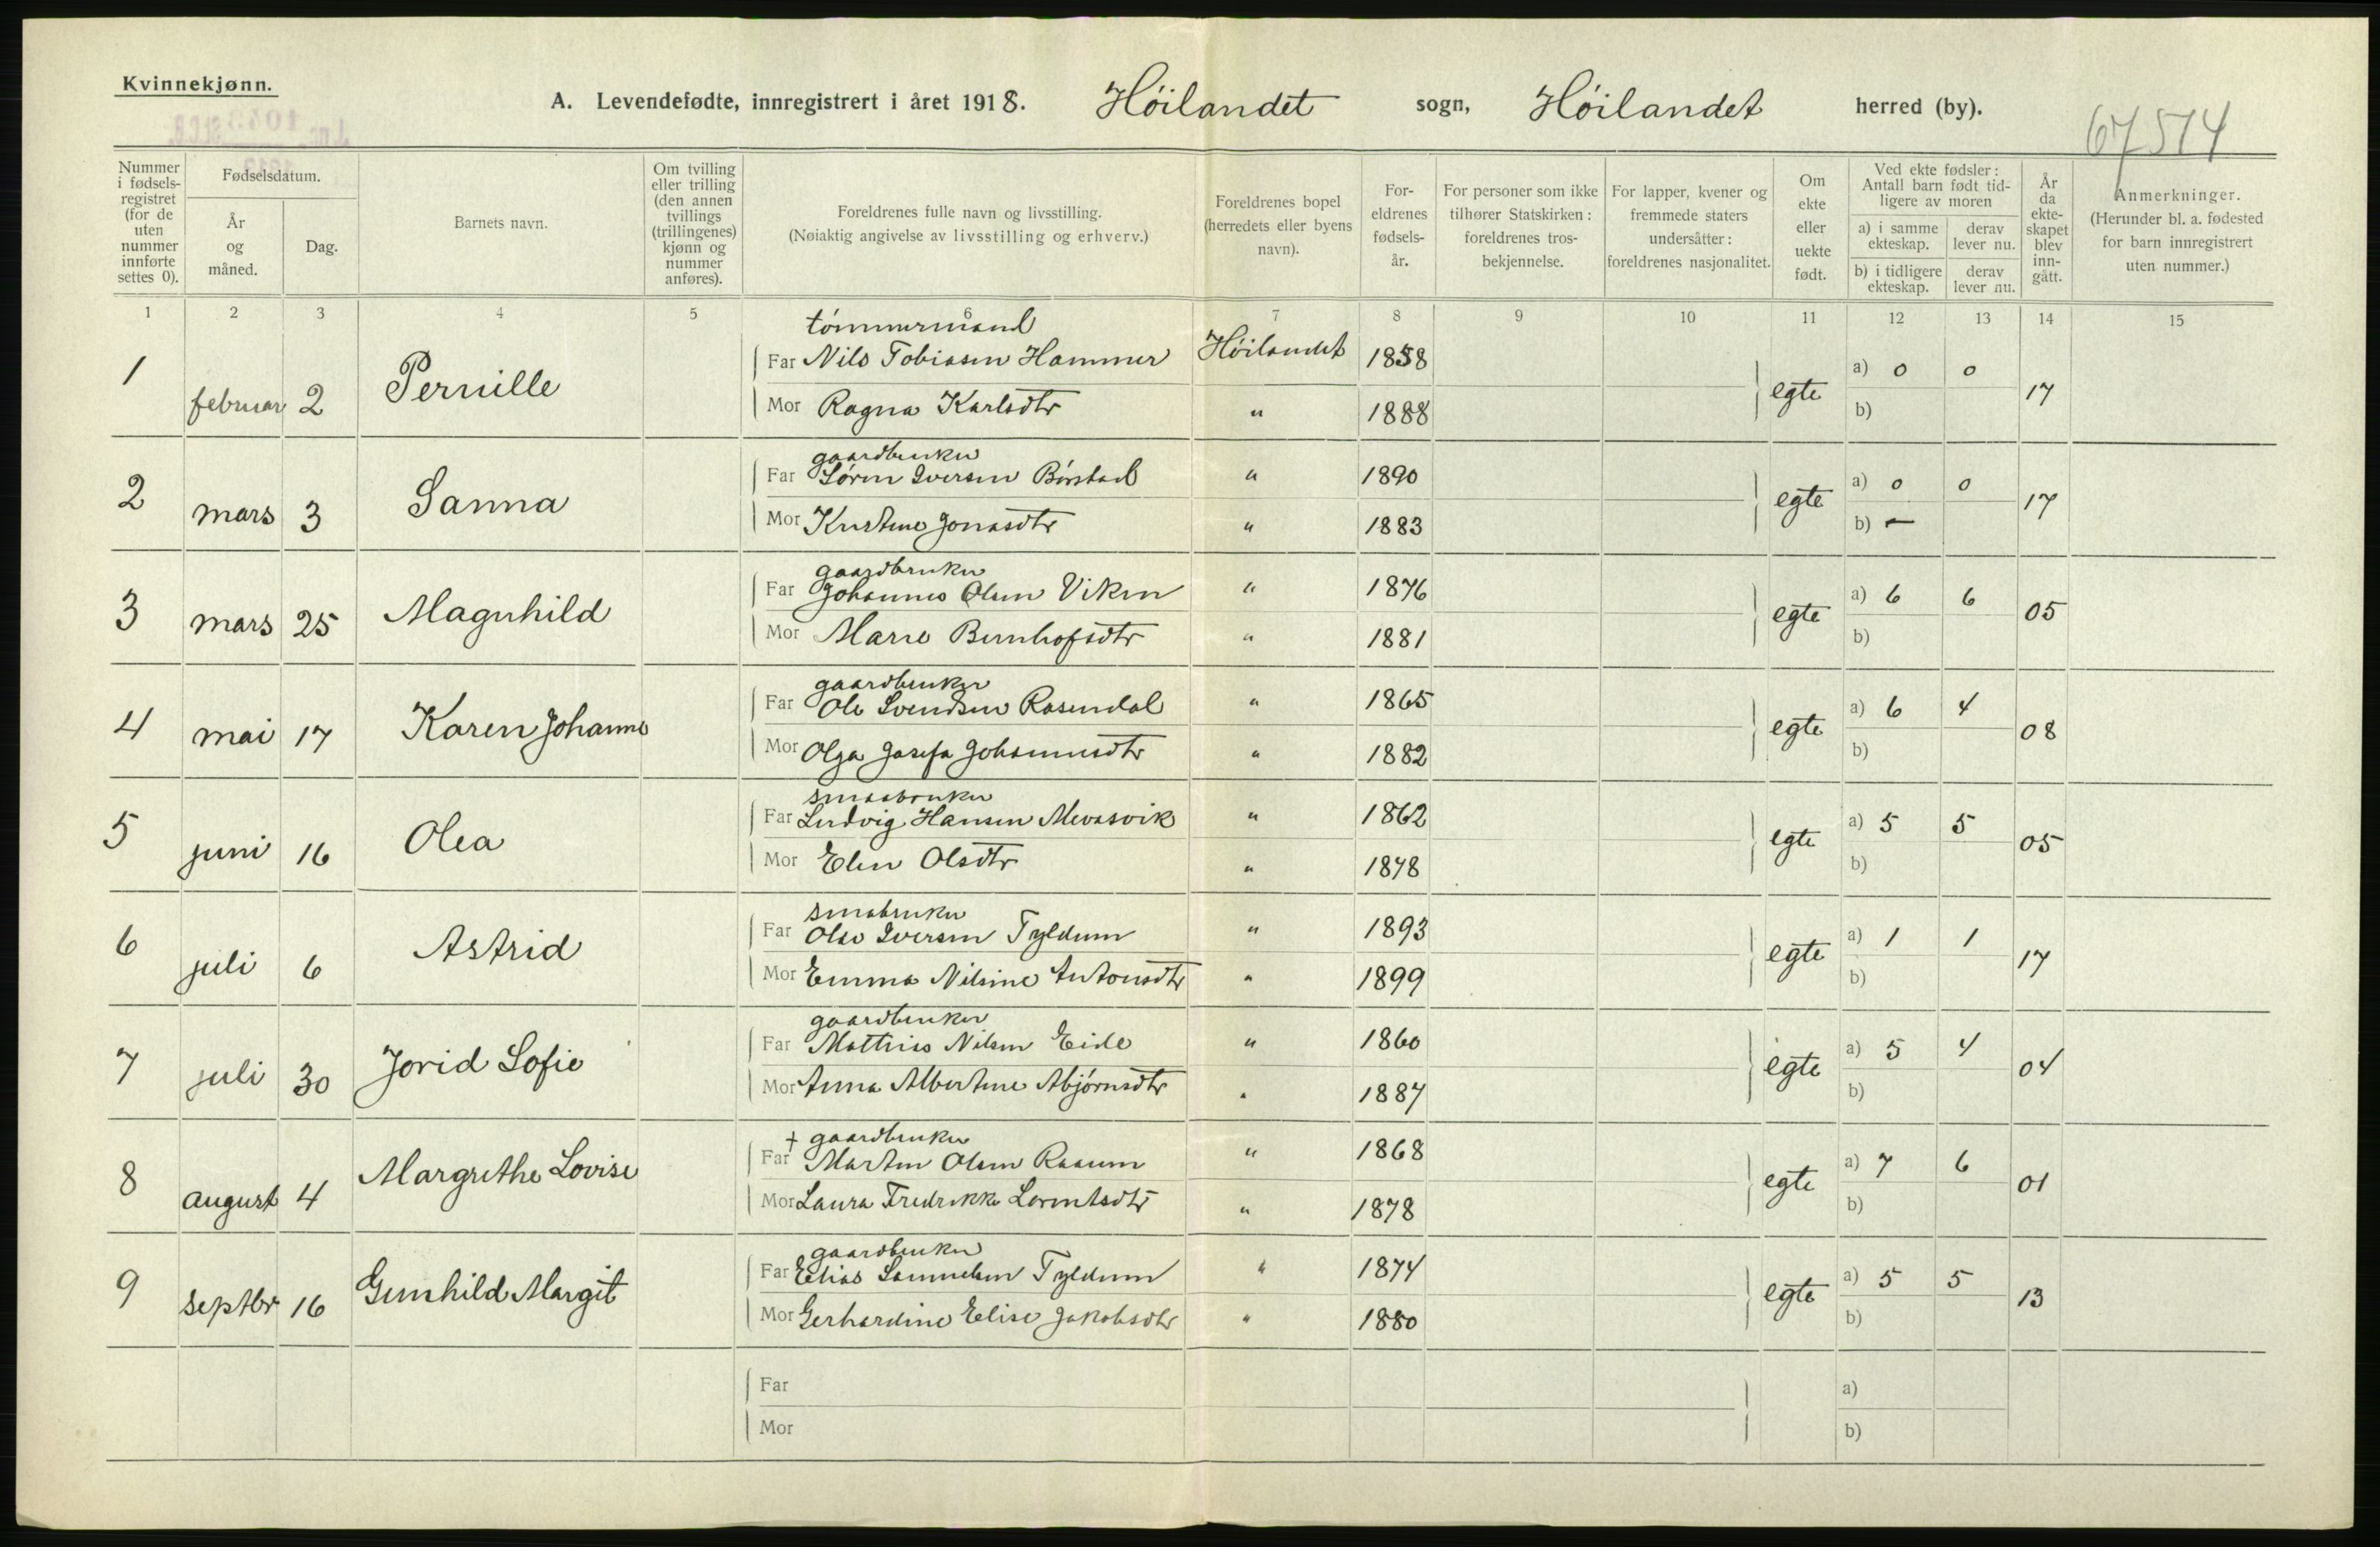 Kvinnekjønn.
A. Levendefødte, innregistrert i året 1918. Höilandet sogn, Höilandet herred (by).
67514
Nummer i fødsels-registret (for de uten nummer innførte settes 0).
Fødselsdatum.
År og måned.
Dag.
Barnets navn.
Om tvilling eller trilling (den annen tvillings (trillingenes) kjønn og nummer anføres).
Foreldrenes fulle navn og livsstilling.
(Nøiaktig angivelse av livsstilling og erhverv.)
Foreldrenes bopel (herredets eller byens navn).
For-eldrenes fødsels-år.
For personer som ikke tilhører Statskirken: foreldrenes tros-bekjennelse.
For lapper, kvener og fremmede staters undersåtter: foreldrenes nasjonalitet.
Om ekte eller uekte født.
Ved ekte fødsler: Antall barn født tid-ligere av moren
a) i samme ekteskap.
derav lever nu.
b) i tidligere ekteskap.
derav lever nu.
År da ekte-skapet blev inn-gått.
Anmerkninger.
(Herunder bl. a. fødested for barn innregistrert uten nummer.)
1 2 3 4 5 6 7 8 9 10 11 12 13 14 15
tömmermand
1 februar 2 Pernille Far Nils Tobiasen Hammer Höilandet 1858 egte a) 0 0 17
Mor Ragna Karlsdtr " 1888 b)
gaardbruker
2 mars 3 Sanna Far Sören Iversen Börstad " 1890 egte a) 0 0 17
Mor Kristine Jonasdtr " 1883 b) –
gaardbruker
3 mars 25 Magnhild Far Johannes Olsen Viken " 1876 egte a) 6 6 05
Mor Marie Bernhofsdtr " 1881 b)
gaardbruker
4 mai 17 Karen Johanne Far Ole Svendsen Rosendal " 1865 egte a) 6 4 08
Mor Olga Josefa Johannesdtr " 1882 b)
smaabruker
5 juni 16 Olea Far Ludvig Hansen Mevasvik " 1862 egte a) 5 5 05
Mor Elen Olsdtr " 1878 b)
smabruker
6 juli 6 Astrid Far Olav Iversen Tyldum " 1893 egte a) 1 1 17
Mor Emma Nilsine Antonsdtr " 1899 b)
gaardbruker
7 juli 30 Jorid Sofie Far Mathias Nilsen Eide " 1860 egte a) 5 4 04
Mor Anna Albertine Abjörnsdtr " 1887 b)
+ gaardbruker
8 august 4 Margrethe Lovise Far Martin Olsen Raaum " 1868 egte a) 7 6 01
Mor Laura Fredrikke Lorentsdtr " 1878 b)
gaardbruker
9 septbr 16 Gunhild Margit Far Elias Samuelsen Tyldum " 1874 egte a) 5 5 13
Mor Gerhardine Elise Jakobsdtr " 1880 b)
Far a)
Mor b)